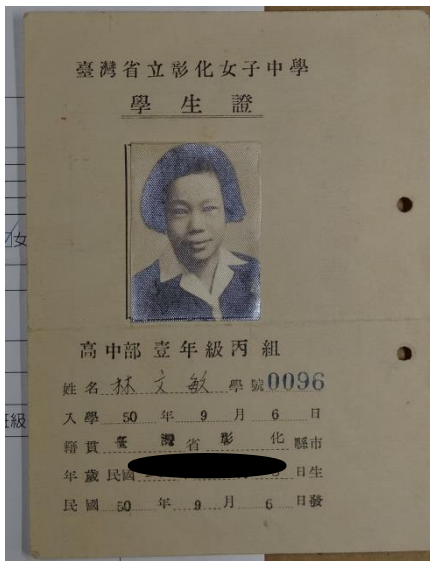 臺灣省立彰化女子中學
學生證
高中部壹年級丙組
姓名 林文敏 學號 0096
入學 50 年 9 月 6 日
籍貫 臺灣省彰化 縣市
年歲民國 日生
民國 50 年 9 月 6 日發
女
級